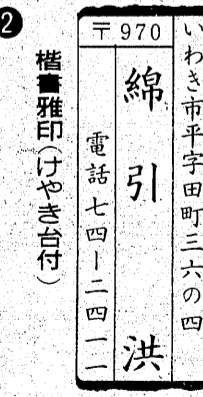 いわき市平字田町三六の四
〒970
綿引 洪
電話 七四ー二四一一
楷書雅印(けやき台付)
2